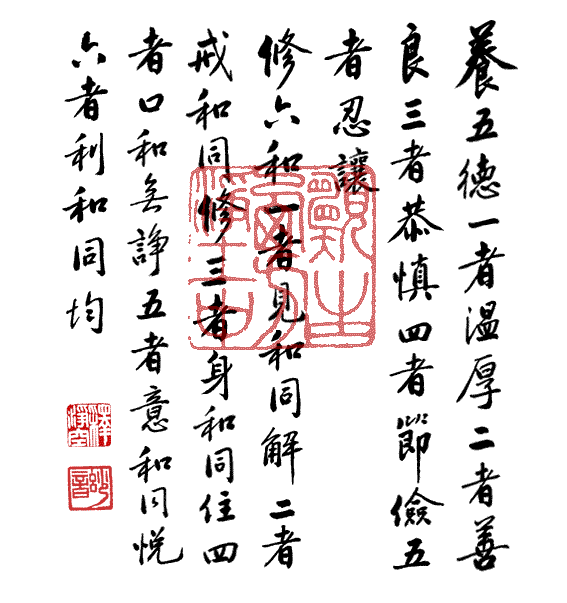 養五德一者溫厚二者善
良三者恭慎四者節儉五
者忍讓
修六和一者見和同解二者
戒和同修三者身和同住四
者口和無諍五者意和同悅
六者利和同均
願生
西方
淨土
釋
淨空
妙音